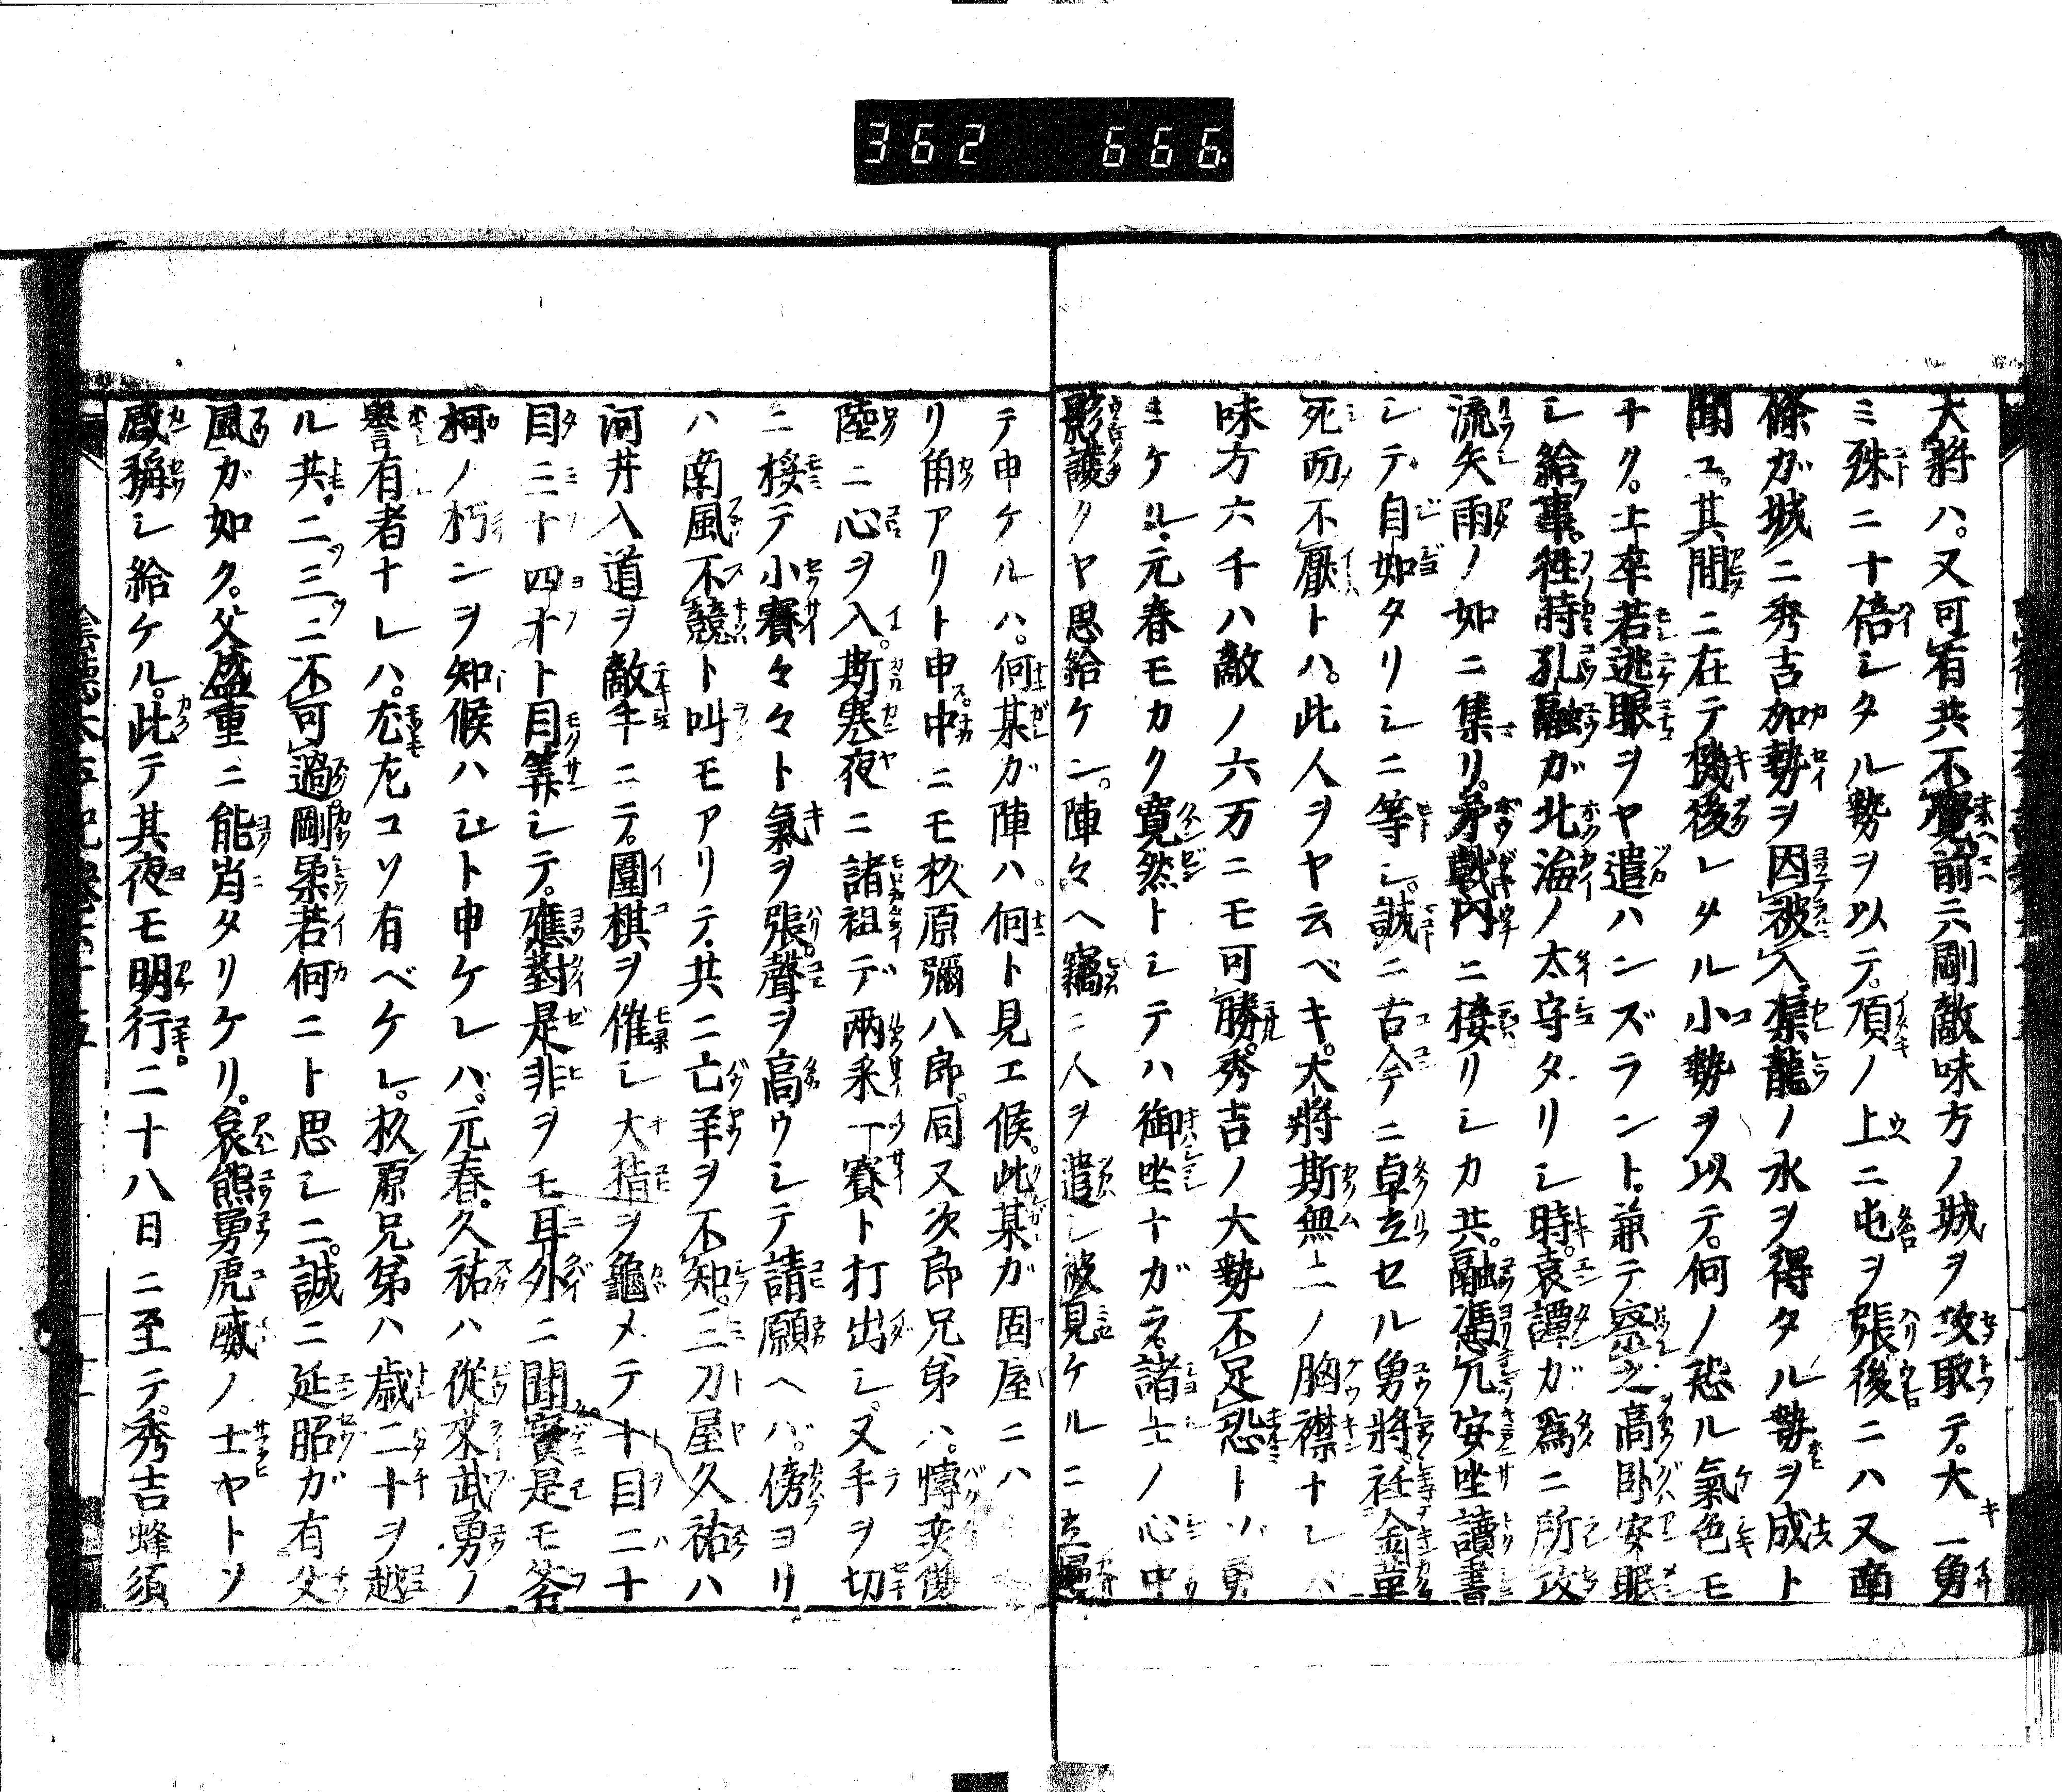 362 666
大將ハ。又可有共不覺。前ニハ剛敵味方ノ城ヲ攻取テ。大ニ勇
ミ殊ニ十倍シタル勢ヲ以テ。頂ノ上ニ屯ヲ張。後ニハ又南
條ガ城ニ秀吉加勢ヲ因被入。集龍ノ水ヲ得タル勢ヲ成ト
聞ユ。其間ニ在テ機後レタル小勢ヲ以テ。何ノ恐ル氣色モ
ナク。士卒若逃眠ヲヤ遣ハンズラント。兼テ察之高臥安眠
シ給事。往時孔融ガ北海ノ太守タリシ時。袁譚ガ爲ニ所攻
流矢雨ノ如ニ集リ。矛戟内ニ接リシカ共。融憑几安坐讀書
シテ自如タリシニ等シ。誠ニ古今ニ卓立セル勇將衽金革
死而不厭トハ。此人ヲヤ云ベキ。大將斯無二ノ胸襟ナレハ
味方六千ハ敵ノ六万ニモ可勝。秀吉ノ大勢不足恐トソ勇
ミケル。元春モカク寛然トシテハ御坐ナガラ。諸士ノ心中
影護クヤ思給ケン。陣々ヘ竊ニ人ヲ遣シ被見ケルニ立歸
テ申ケルハ。何某ガ陣ハ何ト見エ候。此某ガ固屋ニハ
リ角アリト申。中ニモ杉原彌八郎。同又次郎兄弟ハ。博奕雙
陸ニ心ヲ入。斯寒夜ニ諸祖デ兩釆一賽ト打出シ。又手ヲ切
ニ按テ小賽々々ト氣ヲ張。聲ヲ高ウシテ請願ヘバ。傍ヨリ
ハ南風不競ト叫モアリテ。共ニ亡羊ヲ不知。三刀屋久祐ハ
河井入道ヲ敵手ニテ。圍棋ヲ催シ大指ヲ龜メテ十目二十
目三十四十ト目算シテ。應對是非ヲモ耳外ニ聞實是モ斧
柯ノ朽ンヲ知候ハシト申ケレバ。元春。久祐ハ從來武勇ノ
譽有者ナレハ。尤左コソ有ベケレ。杉原兄弟ハ歳二十ヲ越
ル共。二三ニ不可過。剛柔若何ニト思シニ。誠ニ延昭ガ有父
風ガ如ク。父盛重ニ能肖タリケリ。哀熊勇虎威ノ士ヤトソ
感稱シ給ケル。此テ其夜モ明行二十八日ニ至テ。秀吉蜂須